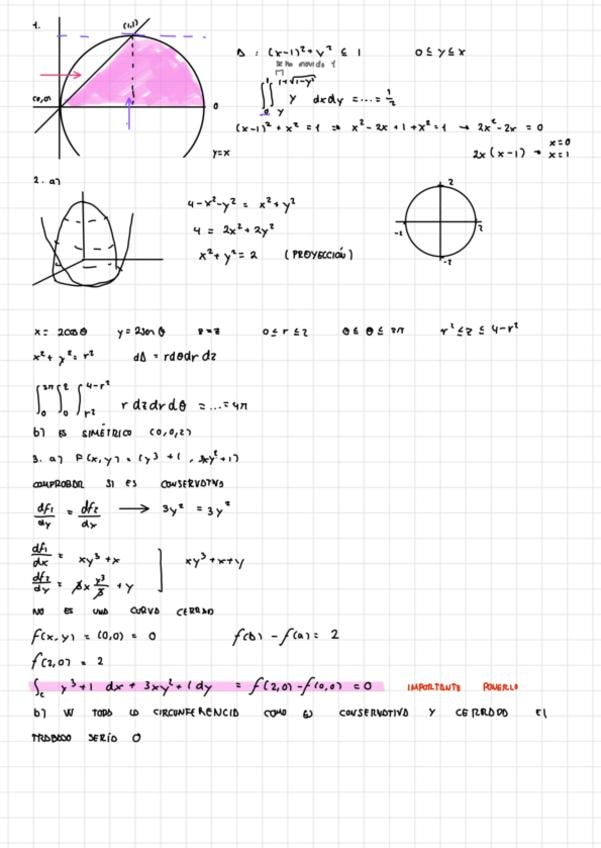 1.
(1,1)
(0,0)
0
y=x
D : (x-1)²+y² ≤ 1 0≤y≤x
se ha movido 1
∫₀¹∫_y^{1+√1-y²} y dxdy =...= 1/2
(x-1)² + x² = 1 ⇒ x²-2x+1+x²=1 → 2x²-2x = 0
2x(x-1) → x=0
x=1
2. a)
4-x²-y² = x²+y²
4 = 2x²+2y²
x²+y²=2 (PROYECCIÓN)
2
-2 2
-2
x= 2cosθ y=2senθ z=z 0≤r≤2 0≤θ≤2π r²≤z≤4-r²
x²+y²=r² dA = rdθdrdz
∫₀^{2π}∫₀²∫_{r²}^{4-r²} r dzdrdθ =...=4π
b) ES SIMÉTRICO (0,0,2)
3. a) F(x,y) = (y³+1, 3xy²+1)
COMPROBAR SI ES CONSERVATIVO
df₁/dy = df₂/dx ⟶ 3y² = 3y²
df₁/dx = xy³+x ] xy³+x+y
df₂/dy = 3x y³/3 + y
NO ES UNA CURVA CERRADA
f(x,y) = (0,0) = 0 f(b) - f(a) = 2
f(2,0) = 2
∫c y³+1 dx + 3xy²+1dy = f(2,0)-f(0,0) = 0 IMPORTANTE PONERLO
b) W TODA LA CIRCUNFERENCIA COMO ES CONSERVATIVO Y CERRADO EL
TRABAJO SERÍA 0